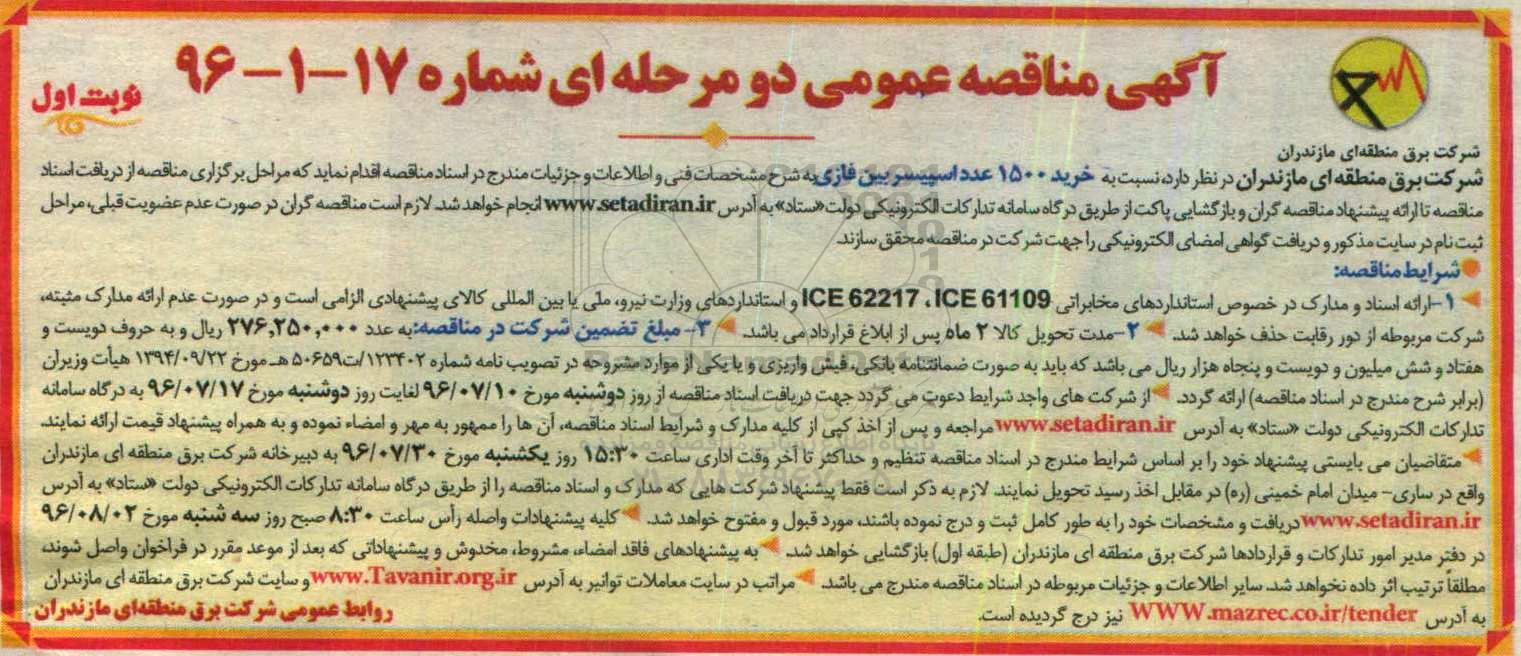 آگهی مناقصه عمومی دو مرحله ای شماره ۱۷-۱-۹۶
نوبت اول
شرکت برق منطقه‌ای مازندران
شرکت برق منطقه ای مازندران در نظر دارد، نسبت به خرید ۱۵۰۰ عدد اسپیسر بین فازی به شرح مشخصات فنی و اطلاعات و جزئیات مندرج در اسناد مناقصه اقدام نماید که مراحل برگزاری مناقصه از دریافت اسناد
مناقصه تا ارائه پیشنهاد مناقصه گران و بازگشایی پاکت از طریق درگاه سامانه تدارکات الکترونیکی دولت «ستاد» به آدرس www.setadiran.ir انجام خواهد شد. لازم است مناقصه گران در صورت عدم عضویت قبلی، مراحل
ثبت نام در سایت مذکور و دریافت گواهی امضای الکترونیکی را جهت شرکت در مناقصه محقق سازند.
شرایط مناقصه:
۱-ارائه اسناد و مدارک در خصوص استانداردهای مخابراتی ICE 62217 ، ICE 61109 و استانداردهای وزارت نیرو، ملی یا بین المللی کالای پیشنهادی الزامی است و در صورت عدم ارائه مدارک مثبته،
شرکت مربوطه از دور رقابت حذف خواهد شد. ۲-مدت تحویل کالا ۲ ماه پس از ابلاغ قرارداد می باشد. ۳- مبلغ تضمین شرکت در مناقصه: به عدد ۲۷۶,۲۵۰,۰۰۰ ریال و به حروف دویست و
هفتاد و شش میلیون و دویست و پنجاه هزار ریال می باشد که باید به صورت ضمانتنامه بانکی، فیش واریزی و یا یکی از موارد مشروحه در تصویب نامه شماره ۱۲۳۴۰۲/ت۵۰۶۵۹ هـ مورخ ۱۳۹۴/۰۹/۲۲ هیأت وزیران
(برابر شرح مندرج در اسناد مناقصه) ارائه گردد. از شرکت های واجد شرایط دعوت می گردد جهت دریافت اسناد مناقصه از روز دوشنبه مورخ ۹۶/۰۷/۱۰ لغایت روز دوشنبه مورخ ۹۶/۰۷/۱۷ به درگاه سامانه
تدارکات الکترونیکی دولت «ستاد» به آدرس www.setadiran.ir مراجعه و پس از اخذ کپی از کلیه مدارک و شرایط اسناد مناقصه، آن ها را ممهور به مهر و امضاء نموده و به همراه پیشنهاد قیمت ارائه نمایند.
متقاضیان می بایستی پیشنهاد خود را بر اساس شرایط مندرج در اسناد مناقصه تنظیم و حداکثر تا آخر وقت اداری ساعت ۱۵:۳۰ روز یکشنبه مورخ ۹۶/۰۷/۳۰ به دبیرخانه شرکت برق منطقه ای مازندران
واقع در ساری- میدان امام خمینی (ره) در مقابل اخذ رسید تحویل نمایند. لازم به ذکر است فقط پیشنهاد شرکت هایی که مدارک و اسناد مناقصه را از طریق درگاه سامانه تدارکات الکترونیکی دولت «ستاد» به آدرس
www.setadiran.ir دریافت و مشخصات خود را به طور کامل ثبت و درج نموده باشند، مورد قبول و مفتوح خواهد شد. کلیه پیشنهادات واصله رأس ساعت ۸:۳۰ صبح روز سه شنبه مورخ ۹۶/۰۸/۰۲
در دفتر مدیر امور تدارکات و قراردادها شرکت برق منطقه ای مازندران (طبقه اول) بازگشایی خواهد شد. به پیشنهادهای فاقد امضاء، مشروط، مخدوش و پیشنهاداتی که بعد از موعد مقرر در فراخوان واصل شوند،
مطلقاً ترتیب اثر داده نخواهد شد. سایر اطلاعات و جزئیات مربوطه در اسناد مناقصه مندرج می باشد. مراتب در سایت معاملات توانیر به آدرس www.Tavanir.org.ir و سایت شرکت برق منطقه ای مازندران
به آدرس WWW.mazrec.co.ir/tender نیز درج گردیده است.
روابط عمومی شرکت برق منطقه‌ای مازندران